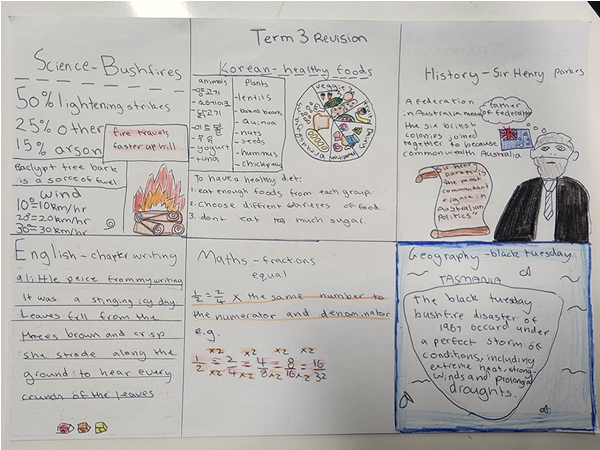 Term 3 Revision
Science-Bushfires
50% lightening strikes
25% other
15% arson
fire travels
faster uphill
is a sorce of fuel
wind
10°=10km/hr
20°=20km/hr
30°=30km/hr
Korean-healthy foods
animals
yogurt
tuna
Plants
-lentils
-baked beans
-quinoa
-nuts
-seeds
-hummus
-chickpeas
veggies
To have a healthy diet:
1. eat enough foods from each group.
2. choose different varietes of food.
3. dont eat to much sugar.
History-Sir Henry parkes
A federation
in Australia meant
the six british
colonies joined
together to because
commonwealth Australia
father
of federation
the most
commandant
figure in
Australian
Politics"
English-chapter writing
a little peice from my writing
It was a stinging icy day
Leaves fell from the
trees brown and crisp
she strode along the
ground to hear every
crunch of the leaves
Maths-fractions
equal
1/2 = 2/4 x the same number to
the numerator and denominator
e.g.
x2 x2 x2 x2
1/2 = 2/4 = 4/8 = 8/16 = 16/32
x2 x2 x2 x2
Geography-black tuesday
TASMANIA
The black tuesday
bushfire disaster of
1967 occurd under
a perfect storm of
conditions, including
extreme heat, strong-
winds and prolongd
droughts.